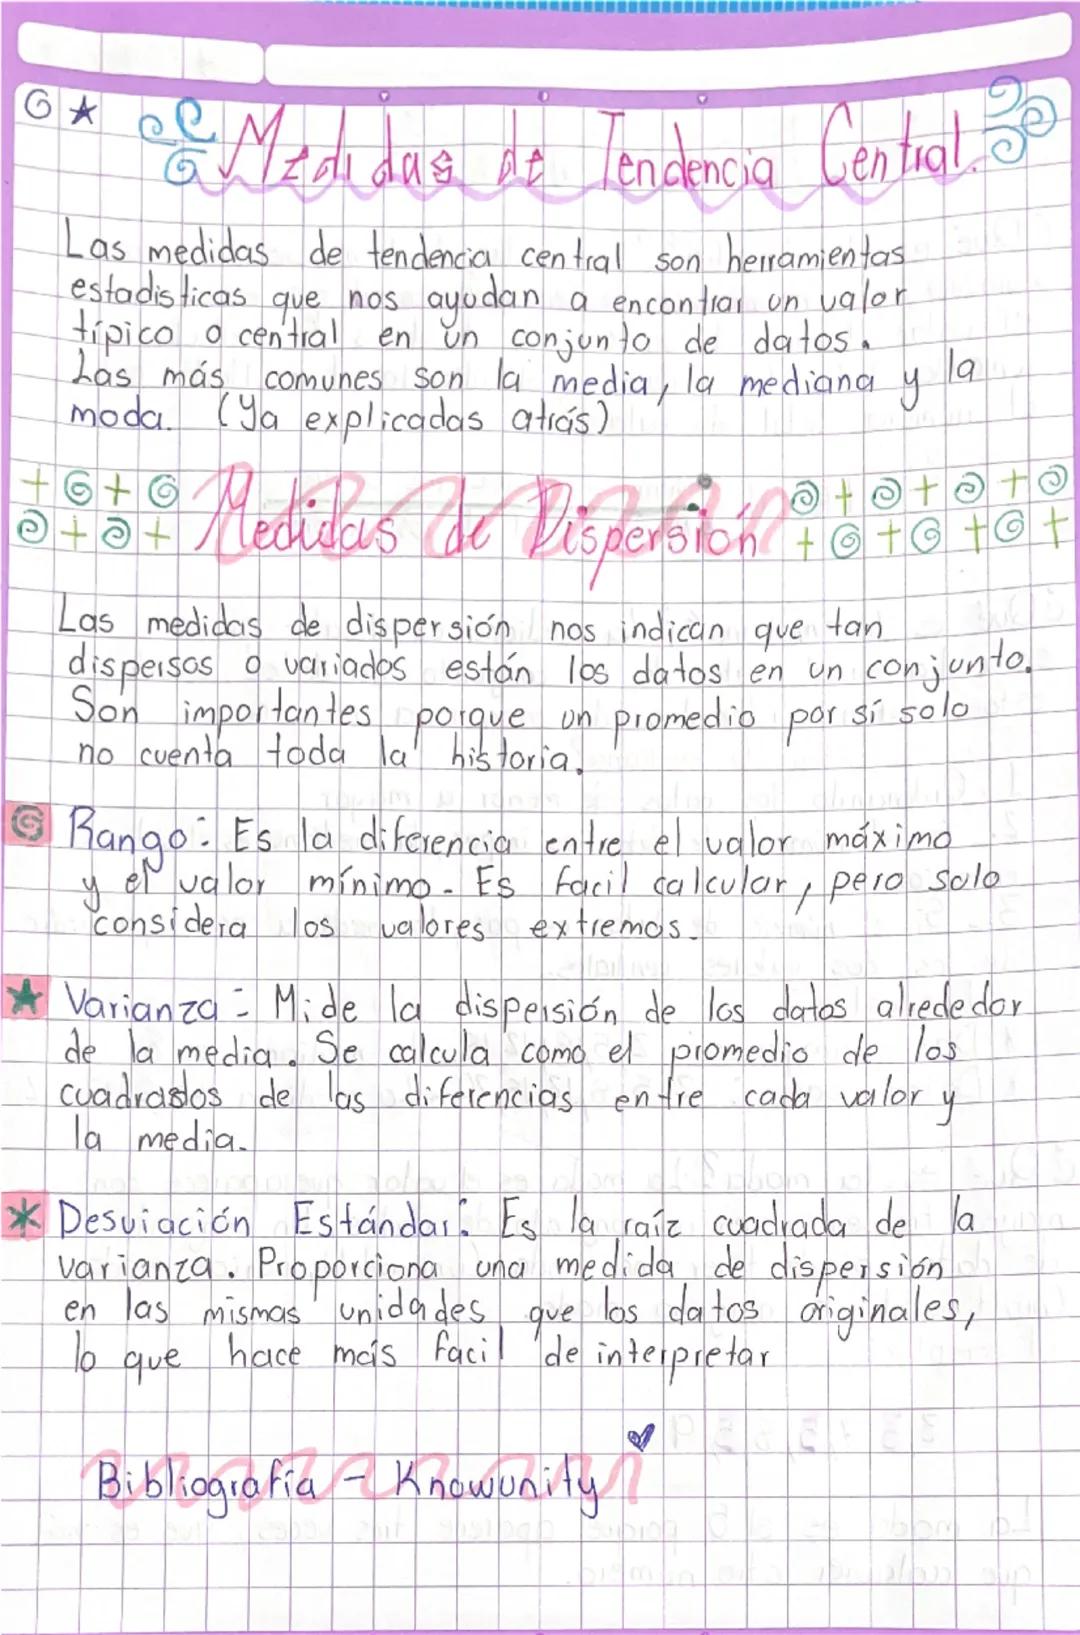 Medidas de Tendencia Central.
Las medidas de tendencia central son herramientas
estadisticas que nos ayudan a encontrar un valor
típico o central en un conjunto de datos.
Las más comunes son la media, la mediana y la
moda. (Ya explicadas atrás)
Medidas de Dispersión
Las medidas de dispersión nos indican que tan
dispersos o variados están los datos en un conjunto.
Son importantes porque un promedio por sí solo
no cuenta toda la historia.
Rango: Es la diferencia entre el valor máximo
y el valor mínimo. Es facil calcular, pero solo
considera los valores extremos.
Varianza: Mide la dispersión de los datos alrededor
de la media. Se calcula como el promedio de los
cuadrados de las diferencias entre cada valor y
la media.
Desviación Estándar: Es la raíz cuadrada de la
varianza. Proporciona una medida de dispersión
en las mismas unidades que los datos originales,
lo que hace más facil de interpretar
Bibliografía - Knowunity